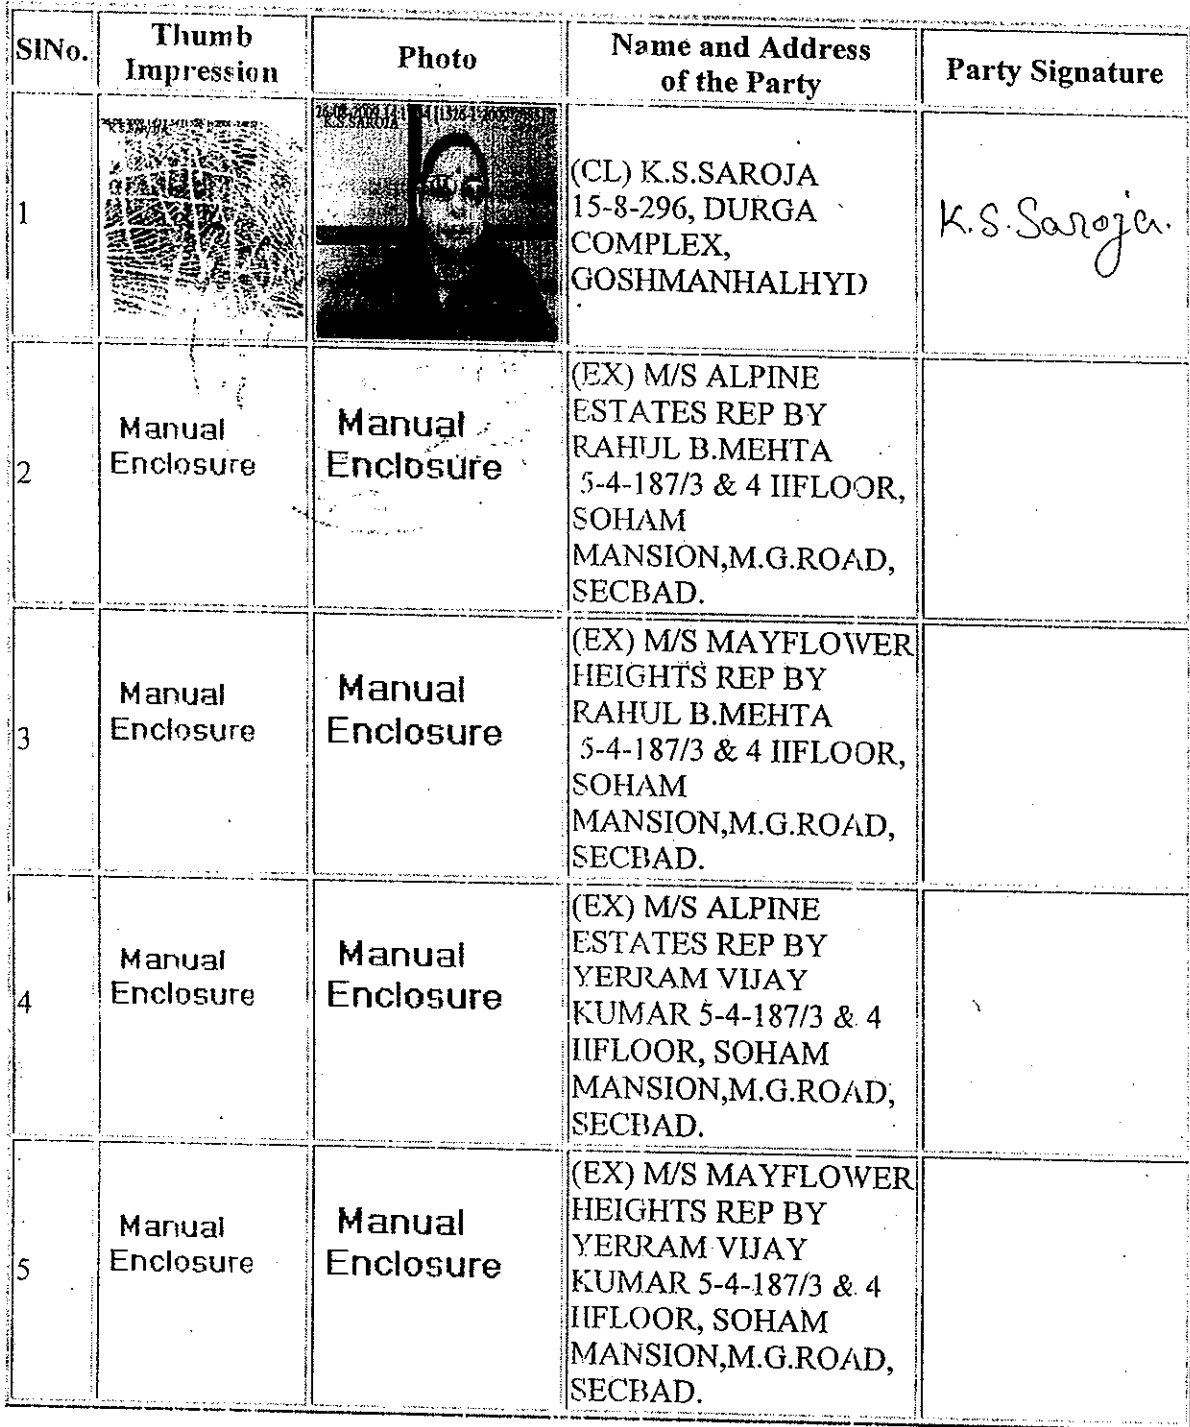 SlNo.
Thumb
Impression
Photo
Name and Address
of the Party
Party Signature
1
K.S.SAROJA
(CL) K.S.SAROJA
15-8-296, DURGA
COMPLEX,
GOSHMANHALHYD
K.S.Saroja.
2
Manual
Enclosure
Manual
Enclosure
(EX) M/S ALPINE
ESTATES REP BY
RAHUL B.MEHTA
5-4-187/3 & 4 IIFLOOR,
SOHAM
MANSION,M.G.ROAD,
SECBAD.
3
Manual
Enclosure
Manual
Enclosure
(EX) M/S MAYFLOWER
HEIGHTS REP BY
RAHUL B.MEHTA
5-4-187/3 & 4 IIFLOOR,
SOHAM
MANSION,M.G.ROAD,
SECBAD.
4
Manual
Enclosure
Manual
Enclosure
(EX) M/S ALPINE
ESTATES REP BY
YERRAM VIJAY
KUMAR 5-4-187/3 & 4
IIFLOOR, SOHAM
MANSION,M.G.ROAD,
SECBAD.
5
Manual
Enclosure
Manual
Enclosure
(EX) M/S MAYFLOWER
HEIGHTS REP BY
YERRAM VIJAY
KUMAR 5-4-187/3 & 4
IIFLOOR, SOHAM
MANSION,M.G.ROAD,
SECBAD.